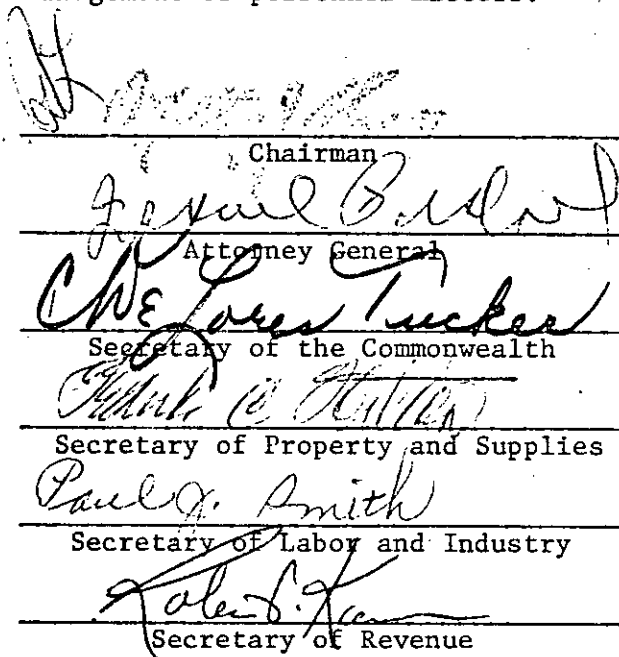 personnel matters.
Chairman
Attorney General
C. DeLores Tucker
Secretary of the Commonwealth
Frank C. Hilton
Secretary of Property and Supplies
Paul J. Smith
Secretary of Labor and Industry
Secretary of Revenue